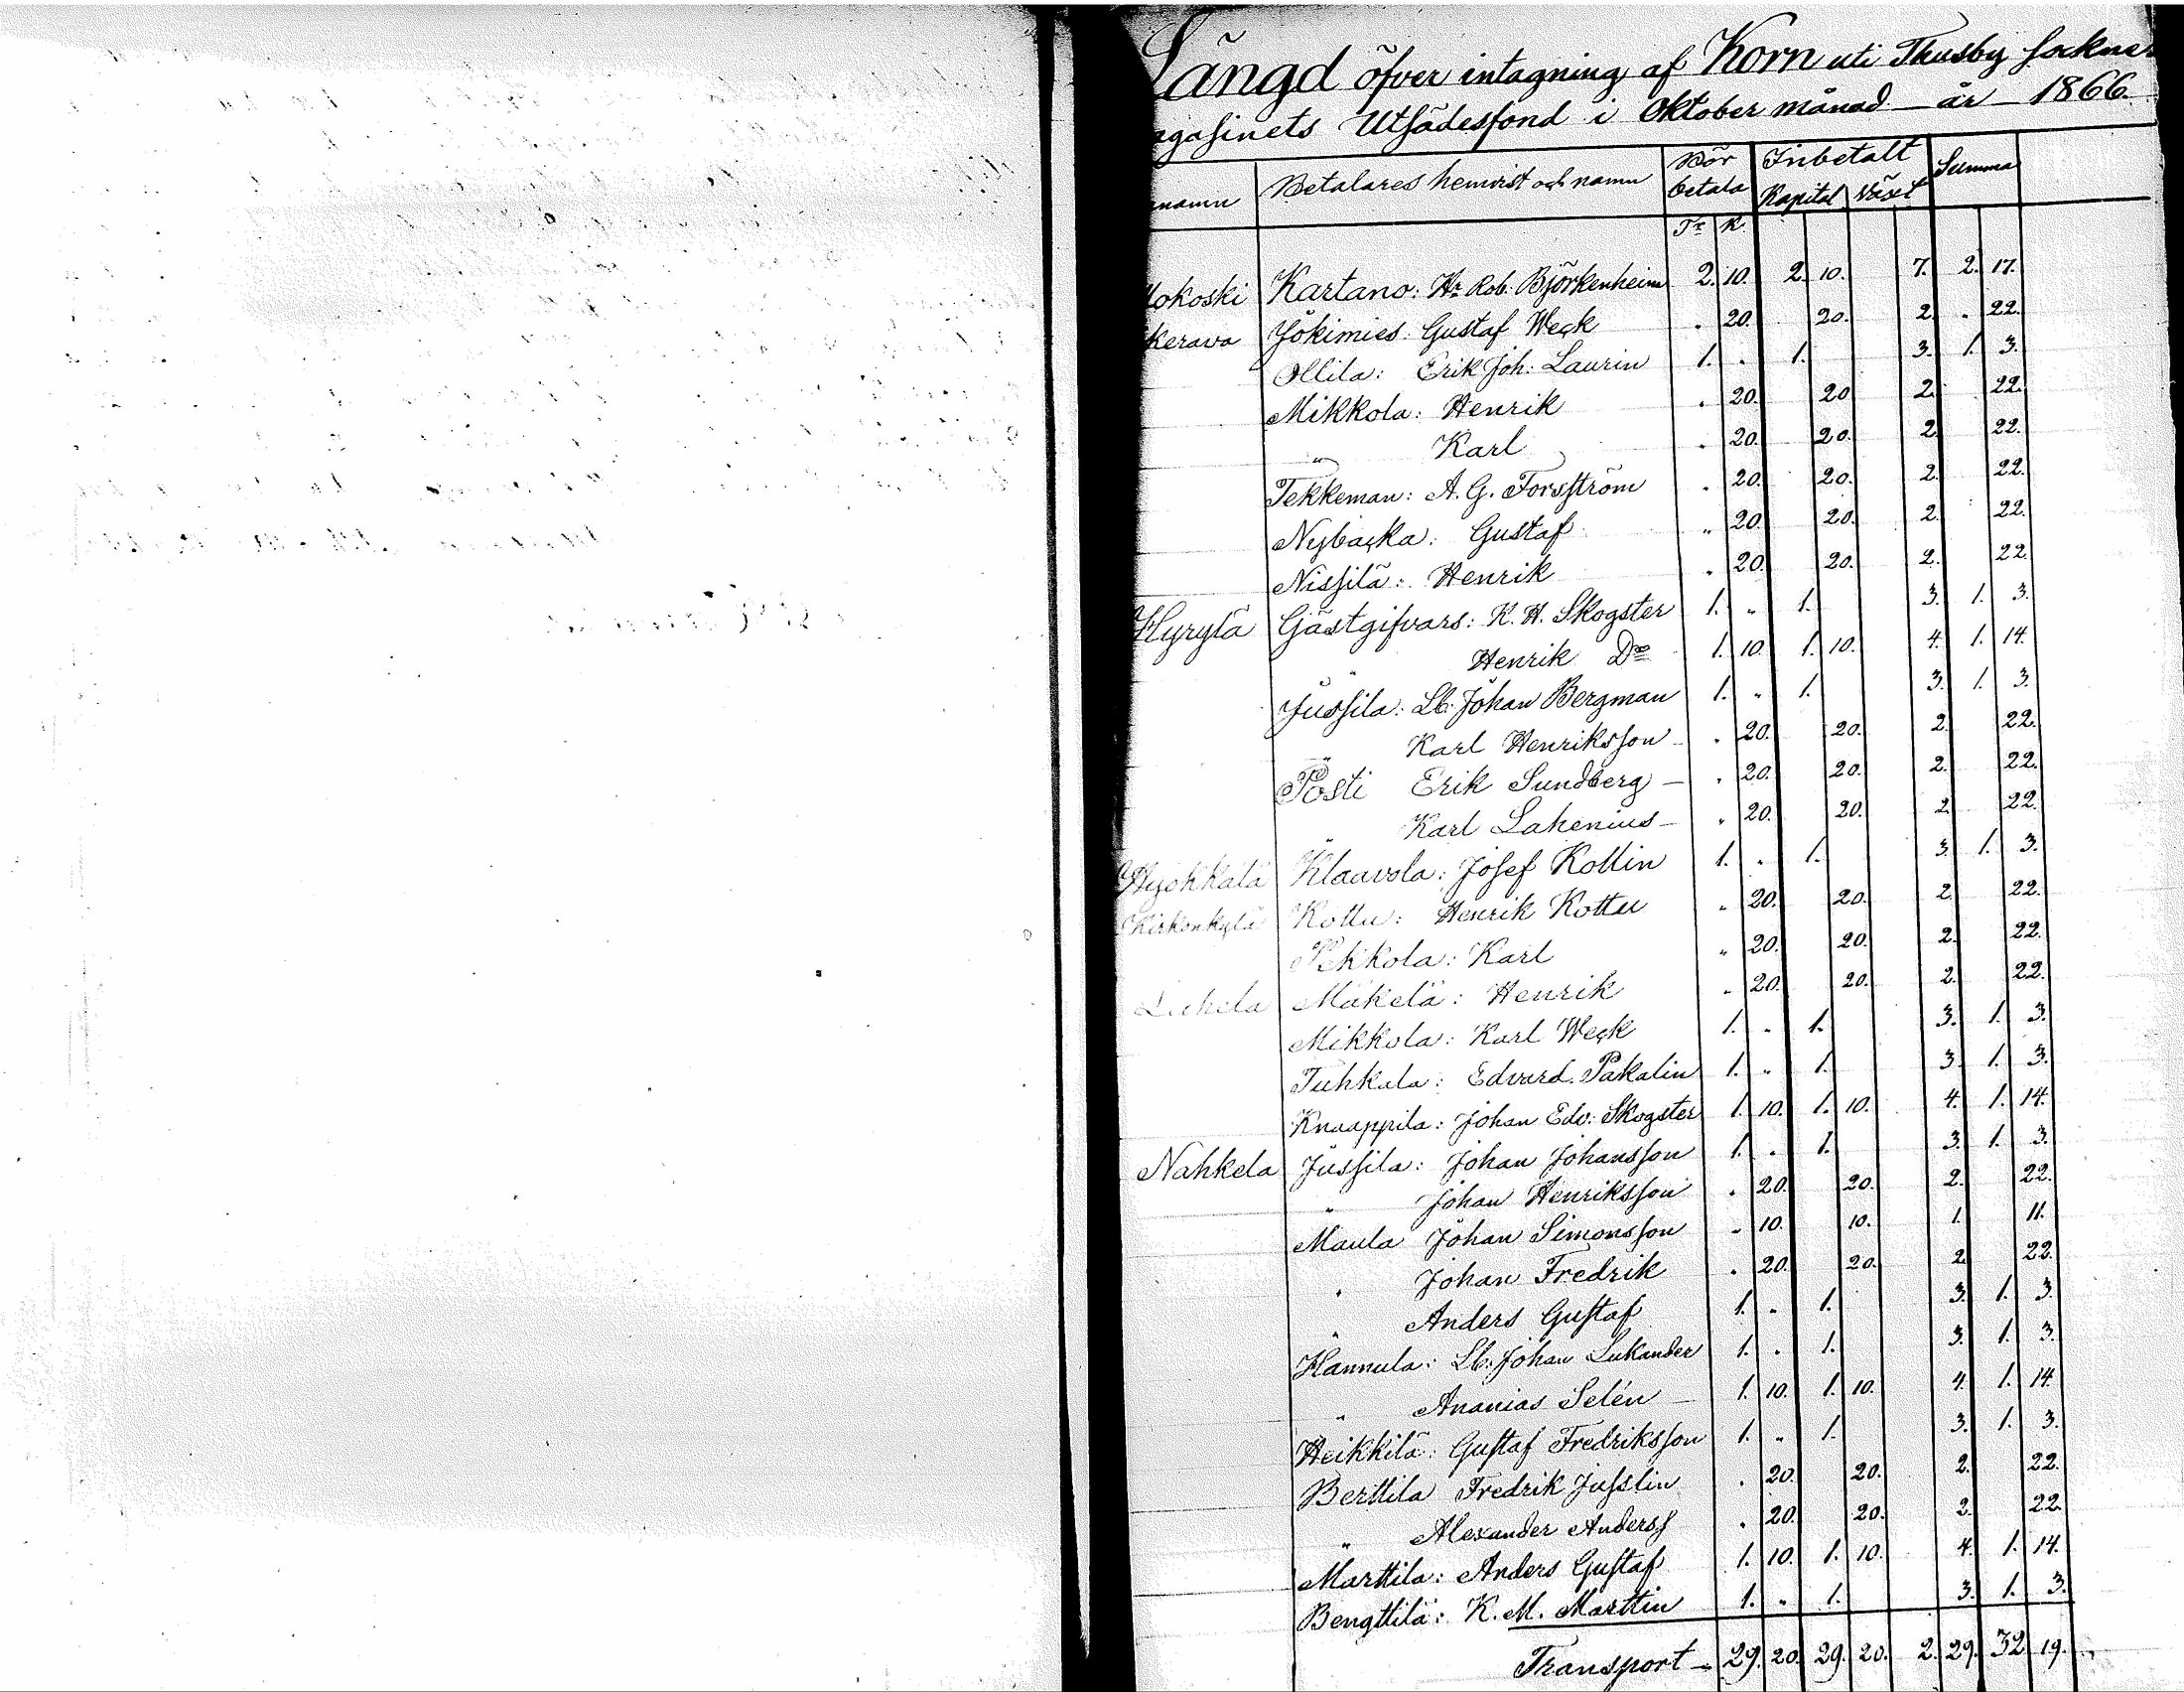 Längd öfver intagning af Korn uti Thusby sockne
agasinets Utsädesfond i Oktober månad år 1866.
namn Betalares hemvist och namn Bör betala Inbetalt Kapital Växt Summa
Tr K.
okoski Kartano: Hr Rob. Björkenheim 2. 10. 2. 10. 7. 2. 17.
Kerava Jokimies: Gustaf Weck . 20. 20. 2. . 22.
Ollila: Erik Joh: Laurin 1. . 1. 3. 1. 3.
Mikkola: Henrik . 20. 20 2. 22.
" Karl . 20. 20. 2. 22.
Tekkeman: A. G. Forsström . 20. 20. 2. 22.
Nybacka: Gustaf " 20. 20. 2. 22.
Nissilä: Henrik . 20. 20. 2. 22.
Hyrylä Gästgifvars: K. H. Skogster 1. " 1. 3. 1. 3.
" Henrik Do 1. 10. 1. 10. 4. 1. 14.
Jussila: Lb. Johan Bergman 1. " 1. 3. 1. 3.
" Karl Henriksson . 20. 20. 2. 22.
Posti Erik Sundberg . 20. 20. 2. 22.
" Karl Lakenius . 20. 20. 2 22.
Hyökkälä Klaavola: Josef Kollin 1. . 1. 3. 1. 3.
Kirkonkylä Kottu: Henrik Kottu " 20. 20. 2 22.
Pekkola: Karl " 20. 20. 2. 22.
Luhela Mäkelä: Henrik " 20. 20. 2. 22.
Mikkola: Karl Weck 1. " 1. 3. 1. 3.
Tuhkala: Edvard Pakalin 1. " 1. 3 1. 3.
Knaappila: Johan Edv: Skogster 1. 10. 1. 10. 4. 1. 14.
Nahkela Jussila: Johan Johansson 1. . 1. 3. 1. 3.
" Johan Henriksson . 20. 20. 2. 22.
Maula Johan Simonsson " 10. 10. 1. 11.
" Johan Fredrik . 20. 20. 2 22.
" Anders Gustaf 1. " 1. 3. 1. 3.
Hannula: Lb. Johan Lukander 1. . 1. 3. 1. 3.
" Ananias Selén 1. 10. 1. 10. 4. 1. 14
Heikkilä: Gustaf Fredriksson 1. " 1. 3. 1. 3.
Berttila Fredrik Jusslin . 20. 20. 2. 22.
" Alexander Anderss . 20. 20. 2. 22
Marttila: Anders Gustaf 1. 10. 1. 10. 4. 1. 14.
Bengttilä: K. M. Marttin 1. " 1. 3. 1. 3.
Transport 29. 20. 29. 20. 2. 29. 32 19.